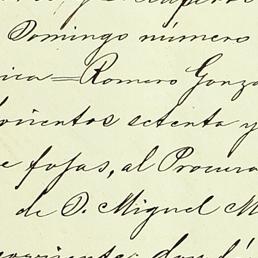 Domingo número
ica = Romero Gonza
cientos setenta y
e fojas, al Procura
de D. Miguel M